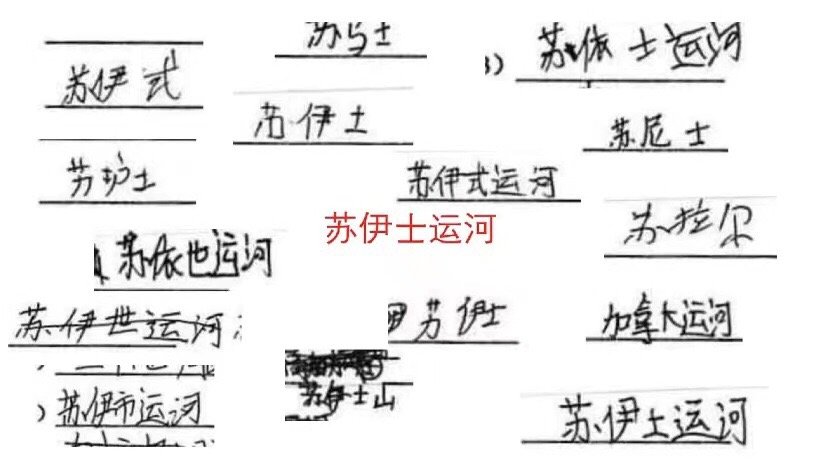 苏马士
3) 苏依士运河
苏伊式
苏伊士
苏尼士
苏护士
苏伊式运河
苏伊士运河
苏拉尔
苏依也运河
苏伊世运河
苏伊士
加拿大运河
苏伊士山
苏伊市运河
苏伊士运河